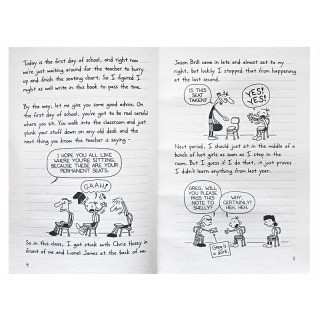 Today is the first day of school, and right now
we're just waiting around for the teacher to hurry
up and finish the seating chart. So I figured I
might as well write in this book to pass the time.
By the way, let me give you some good advice. On
the first day of school, you've got to be real careful
where you sit. You walk into the classroom and just
plunk your stuff down on any old desk and the
next thing you know the teacher is saying -
I HOPE YOU ALL LIKE
WHERE YOU'RE SITTING,
BECAUSE THESE ARE YOUR
PERMANENT SEATS.
GAAH!
So in this class, I got stuck with Chris Hosey in
front of me and Lionel James at the back of me.
4
Jason Brill came in late and almost sat to my
right, but luckily I stopped that from happening
at the last second.
IS THIS
SEAT
TAKEN?
YES!
YES!
Next period, I should just sit in the middle of a
bunch of hot girls as soon as I step in the
room. But I guess if I do that, it just proves
I didn't learn anything from last year.
GREG, WILL
YOU PLEASE
PASS THIS
NOTE TO
SHELLY?
WHY,
CERTAINLY!
HEH, HEH.
Greg is
a dork
5